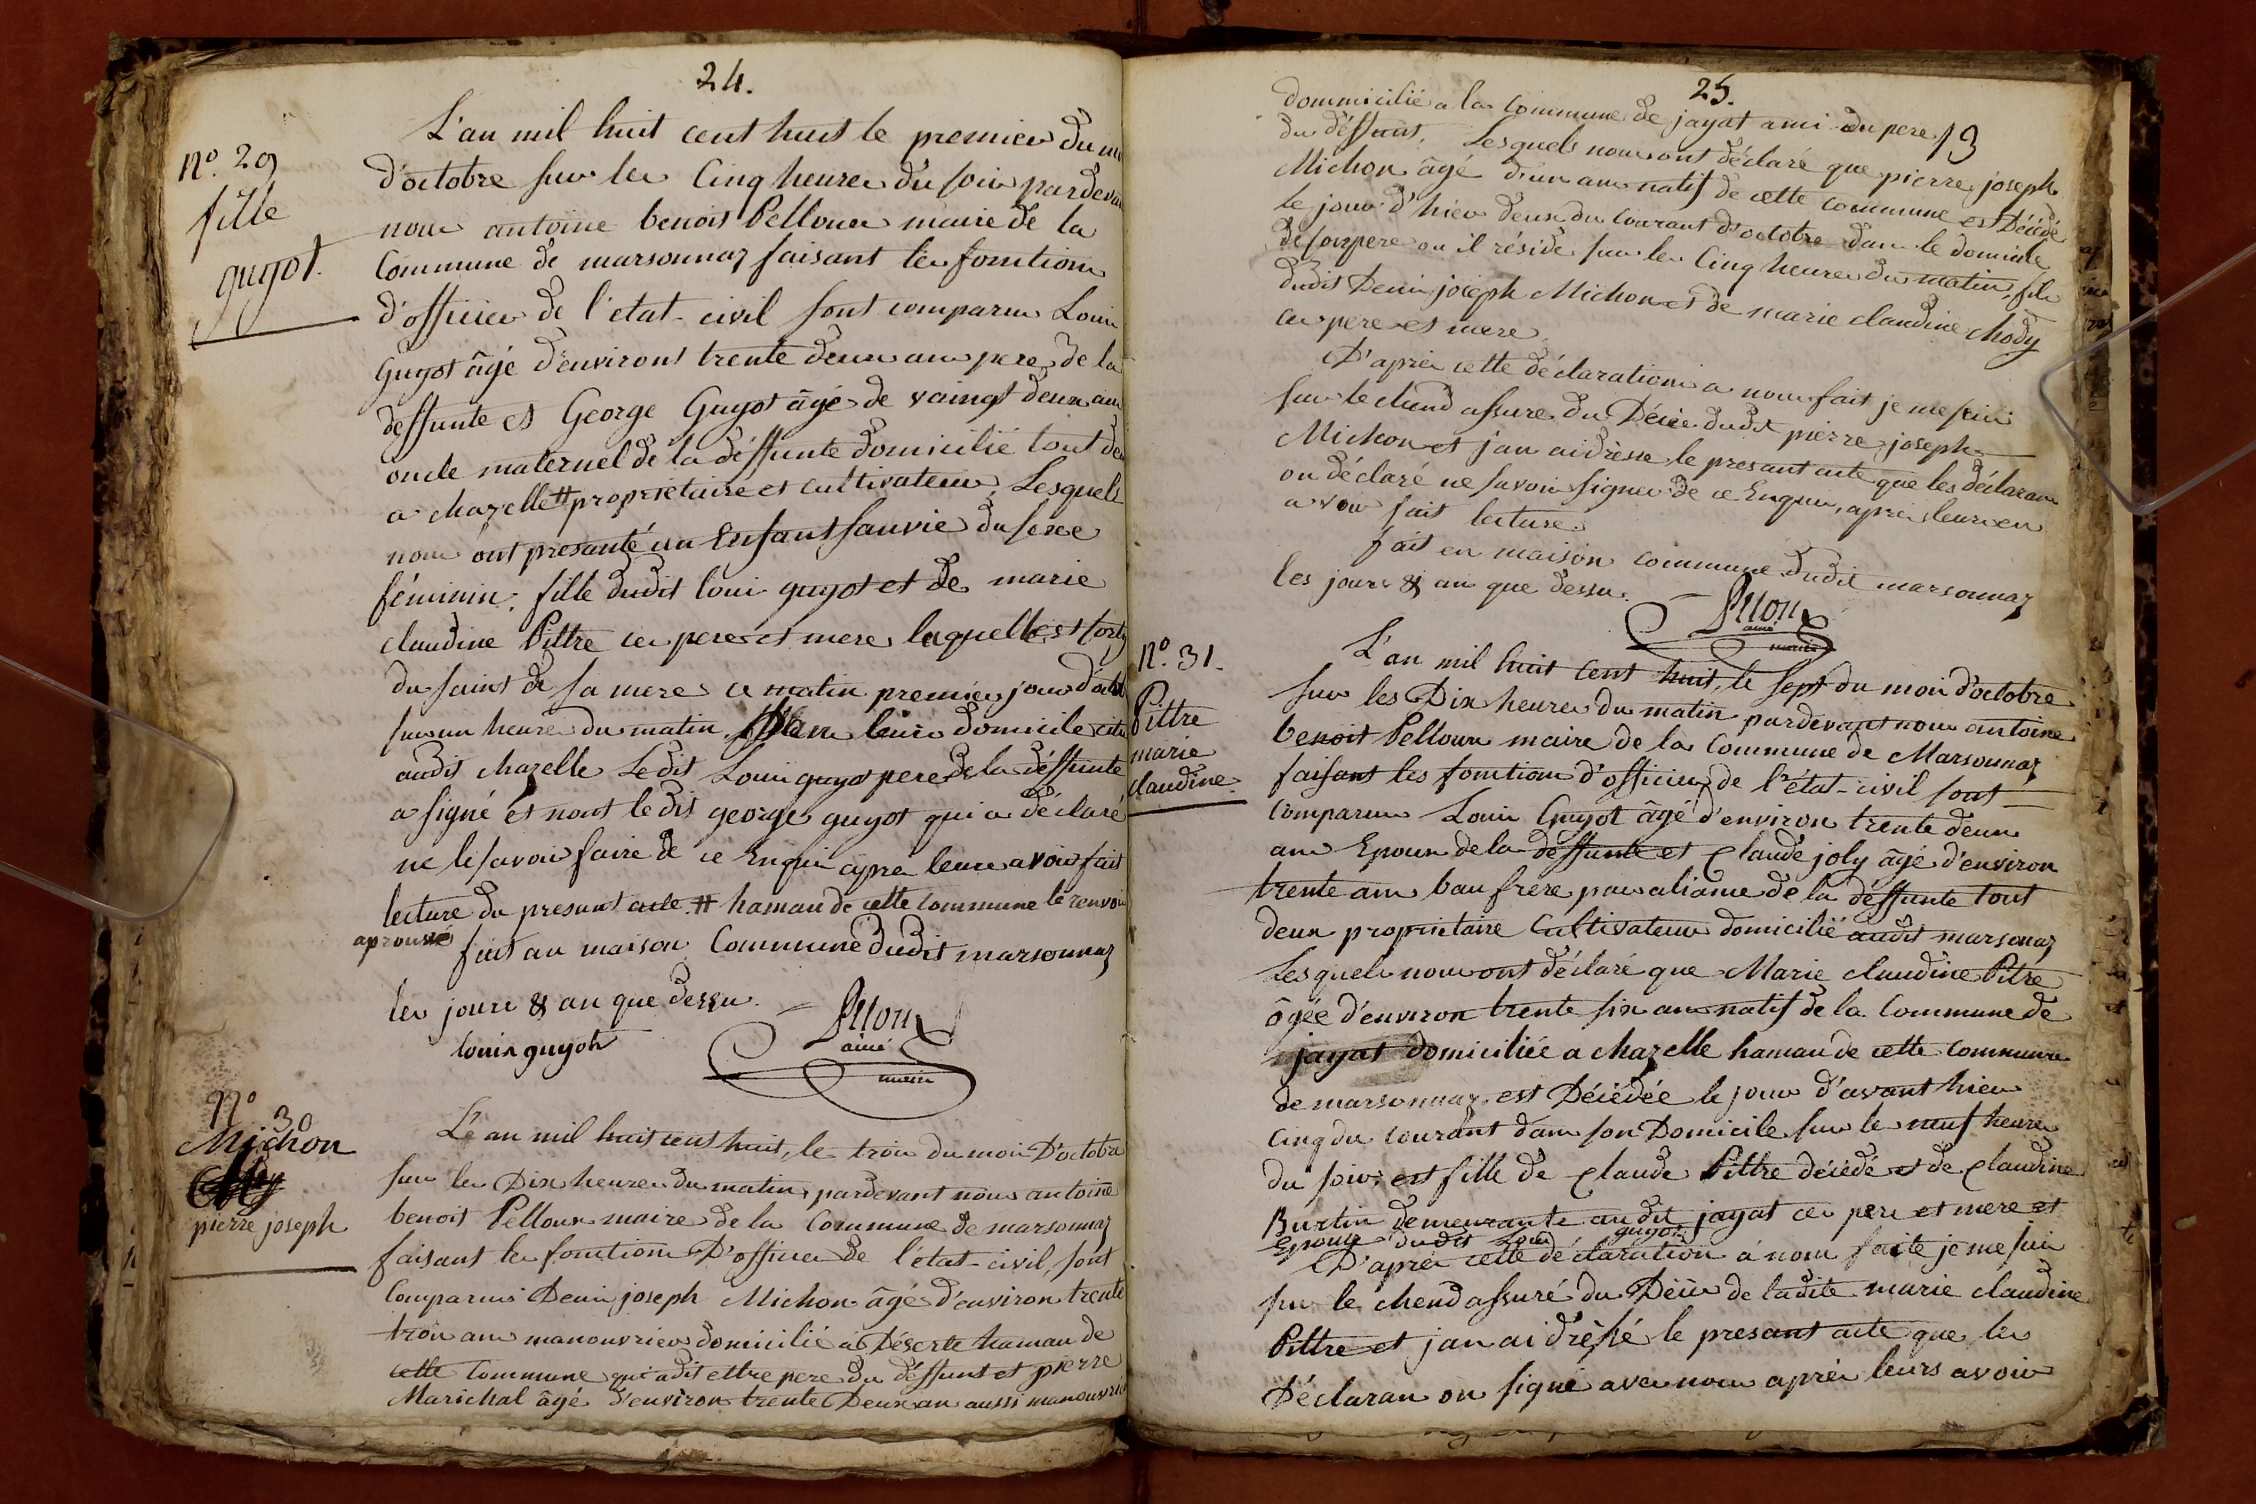 24.
N.o 29
fille
guyot.
L'an mil huit cent huit le premier du moi
d'octobre sur les Cinq heures du soir pardevant
nous antoine benoit Pelloux maire de la
Commune de marsonnaz faisant les fonctions
d'officier de l'etat-civil sont comparus Louis
Guyot âgé d'environt trente deux ans pere de la
deffunte et George Guyot âgé de vaingt deux ans
oncle maternel de la déffunte domicilié tout deu
a chazelle # propriétaire et cultivateur, Lesquels
nous ont presanté un Enfant sanvie du sexe
féminin, fille dudit loui guyot et de marie
claudine Pittre ces pere et mere laquelle est sorty
du saint de sa mere ce matin premier jour d'octob
sur un heure du matin dans leur domicile
audit chazelle Ledit Loui guyot pere de la déffunte
a signé et nont le dit george guyot qui a déclaré
ne le savoir faire de ce Enqui apres leure avoir fait
lecture du presant acte. # hamau de cette commune le renvoi
aprouvé
fait au maison Commune dudit marsonnaz
les jours & an que dessu.
Pelloux
ainé
maire
louis guyot
N.o 30
Michon
pierre joseph
L'an mil huit cent huit, le troi du moi D'octobre
sur les Dix heures du matin, pardevant nous antoine
benoit Pelloux maire de la Commune de marsonnaz
faisant les fonctions D'officier de l'état-civil, sont
Comparus Deni joseph Michon âgé d'environ trente
troi ans manouvrier domicilié à Déserte hamau de
cette Commune qui a dit ettre pere du déffunt et pierre
Marichal âgé d'environ trente Deux an aussi manouvrier
25.
13
dommicilié a la Commune de jayat ami du pere
du déffunt, Lesquels nous ont déclaré que pierre joseph
Michon âgé d'un ans natif de cette commune est Décédé
le jour d'hier deux du courant d'octobre dans le domicile
de son pere ou il réside sur les Cinq heures du matin, fils
dudit Deni joseph Michon et de marie claudine Mody
ces pere et mere.
D'après cette déclaration a nous fait je me suis
sur le chend assure du Décès dudit pierre joseph
Michon et j'an ai drèsse le presant acte que les déclarans
on déclaré ne savoir signer de ce Enquis, après leur en
avoir fait lecture.
fait en maison commune dudit marsonnaz
les jours & an que dessu.
Pelloux
ainé
maire
N.o 31.
Pittre
marie
claudine.
L'an mil huit cent huit, le sept du moi d'octobre
sur les Dix heures du matin pardevant nous antoine
benoit Pelloux maire de la Commune de Marsonnaz
faisant les fonctions d'officier de l'état-civil sont
Comparus Loui Guyot âgé d'environ trente deux
ans Epoux de la deffunte et Claude joly âgé d'environ
trente ans bau frere par aliance de la déffunte tout
deux propriétaire Cultivateur domicilié audit marsonaz
Lesquels nous ont déclaré que Marie claudine Pitre
âgée d'environ trente six ans natif de la Commune de
jayat domiciliée a chazelle hamau de cette commune
de marsonnaz est Décédée le jour d'avant hier
Cinq du courant dans son Domicile sur le neuf heures
du soir, est fille de Claude Pittre décédé et de Claudine
Burtin demeurante au dit jayat ces pere et mere et
Epouse du dit Loui guyot
D'après cette déclaration à nous faite je me suis
sur le chend assuré du Décès de ladite marie claudine
Pittre et j'an ai drèssé le presant acte que les
Déclarans on signé avec nous après leurs avoir